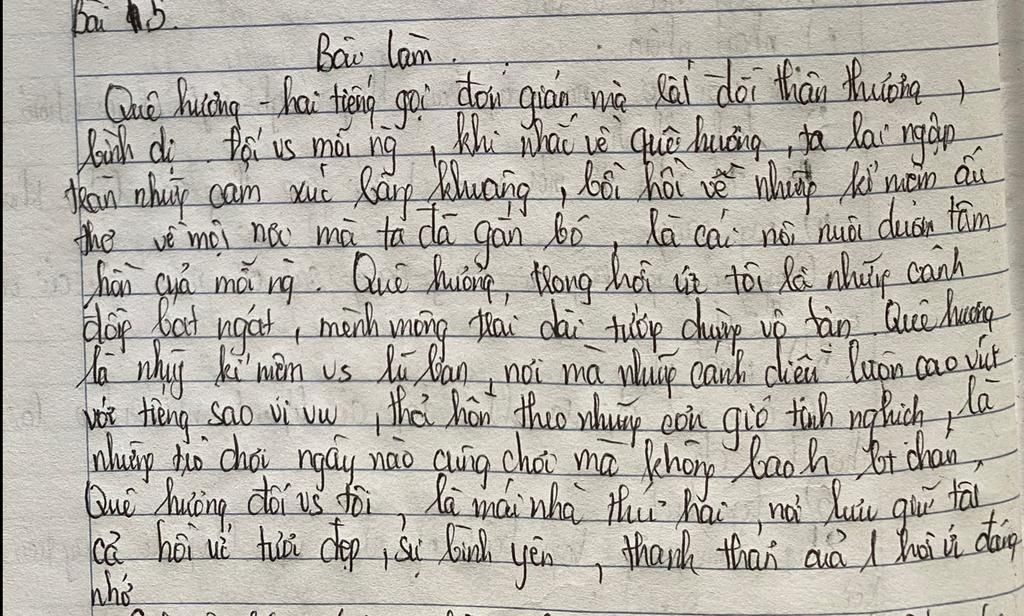 Bài 5.
Bài làm.
Quê hương - hai tiếng gọi đơn giản mà rất đỗi thân thương,
bình dị. Đối vs mỗi ng, khi nhắc về quê hương, ta lại ngập
tràn những cảm xúc bâng khuâng, bồi hồi về những kỉ niệm ấu
thơ về một nơi mà ta đã gắn bó, là cái nôi nuôi dưỡng tâm
hồn của mỗi ng. Quê hương, trong hồi ức tôi là những cánh
đồng bát ngát, mênh mông trải dài tưởng chừng vô tận. Quê hương
là những kỉ niệm vs lũ bạn, nơi mà những cánh diều lượn cao vút
với tiếng sáo vi vu, thả hồn theo những cơn gió tinh nghịch, là
những trò chơi ngày nào cũng chơi mà không bao h bt chán,
Quê hương đối vs tôi, là mái nhà thứ hai, nơi lưu giữ tất
cả hồi ức tươi đẹp, sự bình yên, thanh thản của 1 hồi ức đáng
nhớ